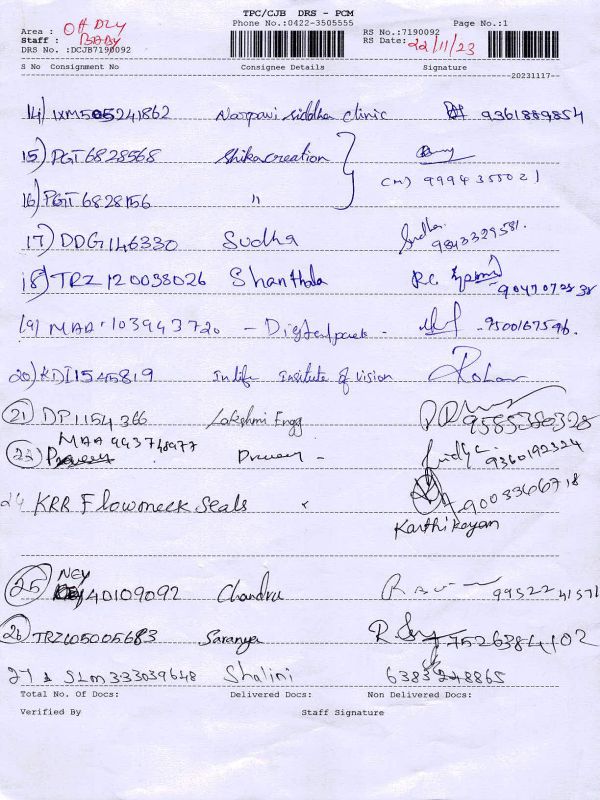 TPC/CJB DRS - PCM
Phone No.:0422-3505555 Page No.:1
Area : OH DLY
Staff : BABY
DRS No. :DCJB7190092
RS No.:7190092
RS Date: 22/11/23
S No Consignment No Consignee Details Signature
20231117
14) IXM505241862 Narpavi siddha clinic 9361889854
15) PGT6828568 Shika creation
(m) 9994355021
16) PGT6828156 "
17) DDG1146330 Sudha Sudha 9843329581
18) TRZ120038026 Shanthala
19) MAA 103943720 - Digital park - 9500167596
20) KDI1545819 In life Insitute of vision Rohan
21) DP1154366 Lakshmi Engg 9585380328
MAA 993748977
23) Praveen - 9360192324
24 KRR Flowmeck seals 9003366718
Karthikeyan
NEY
25) 40109092 Chandru
26) TRZ605005683 Saranya 7526384102
27 SLM333039648 Shalini 6383248865
Total No. Of Docs: Delivered Docs: Non Delivered Docs:
Verified By Staff Signature